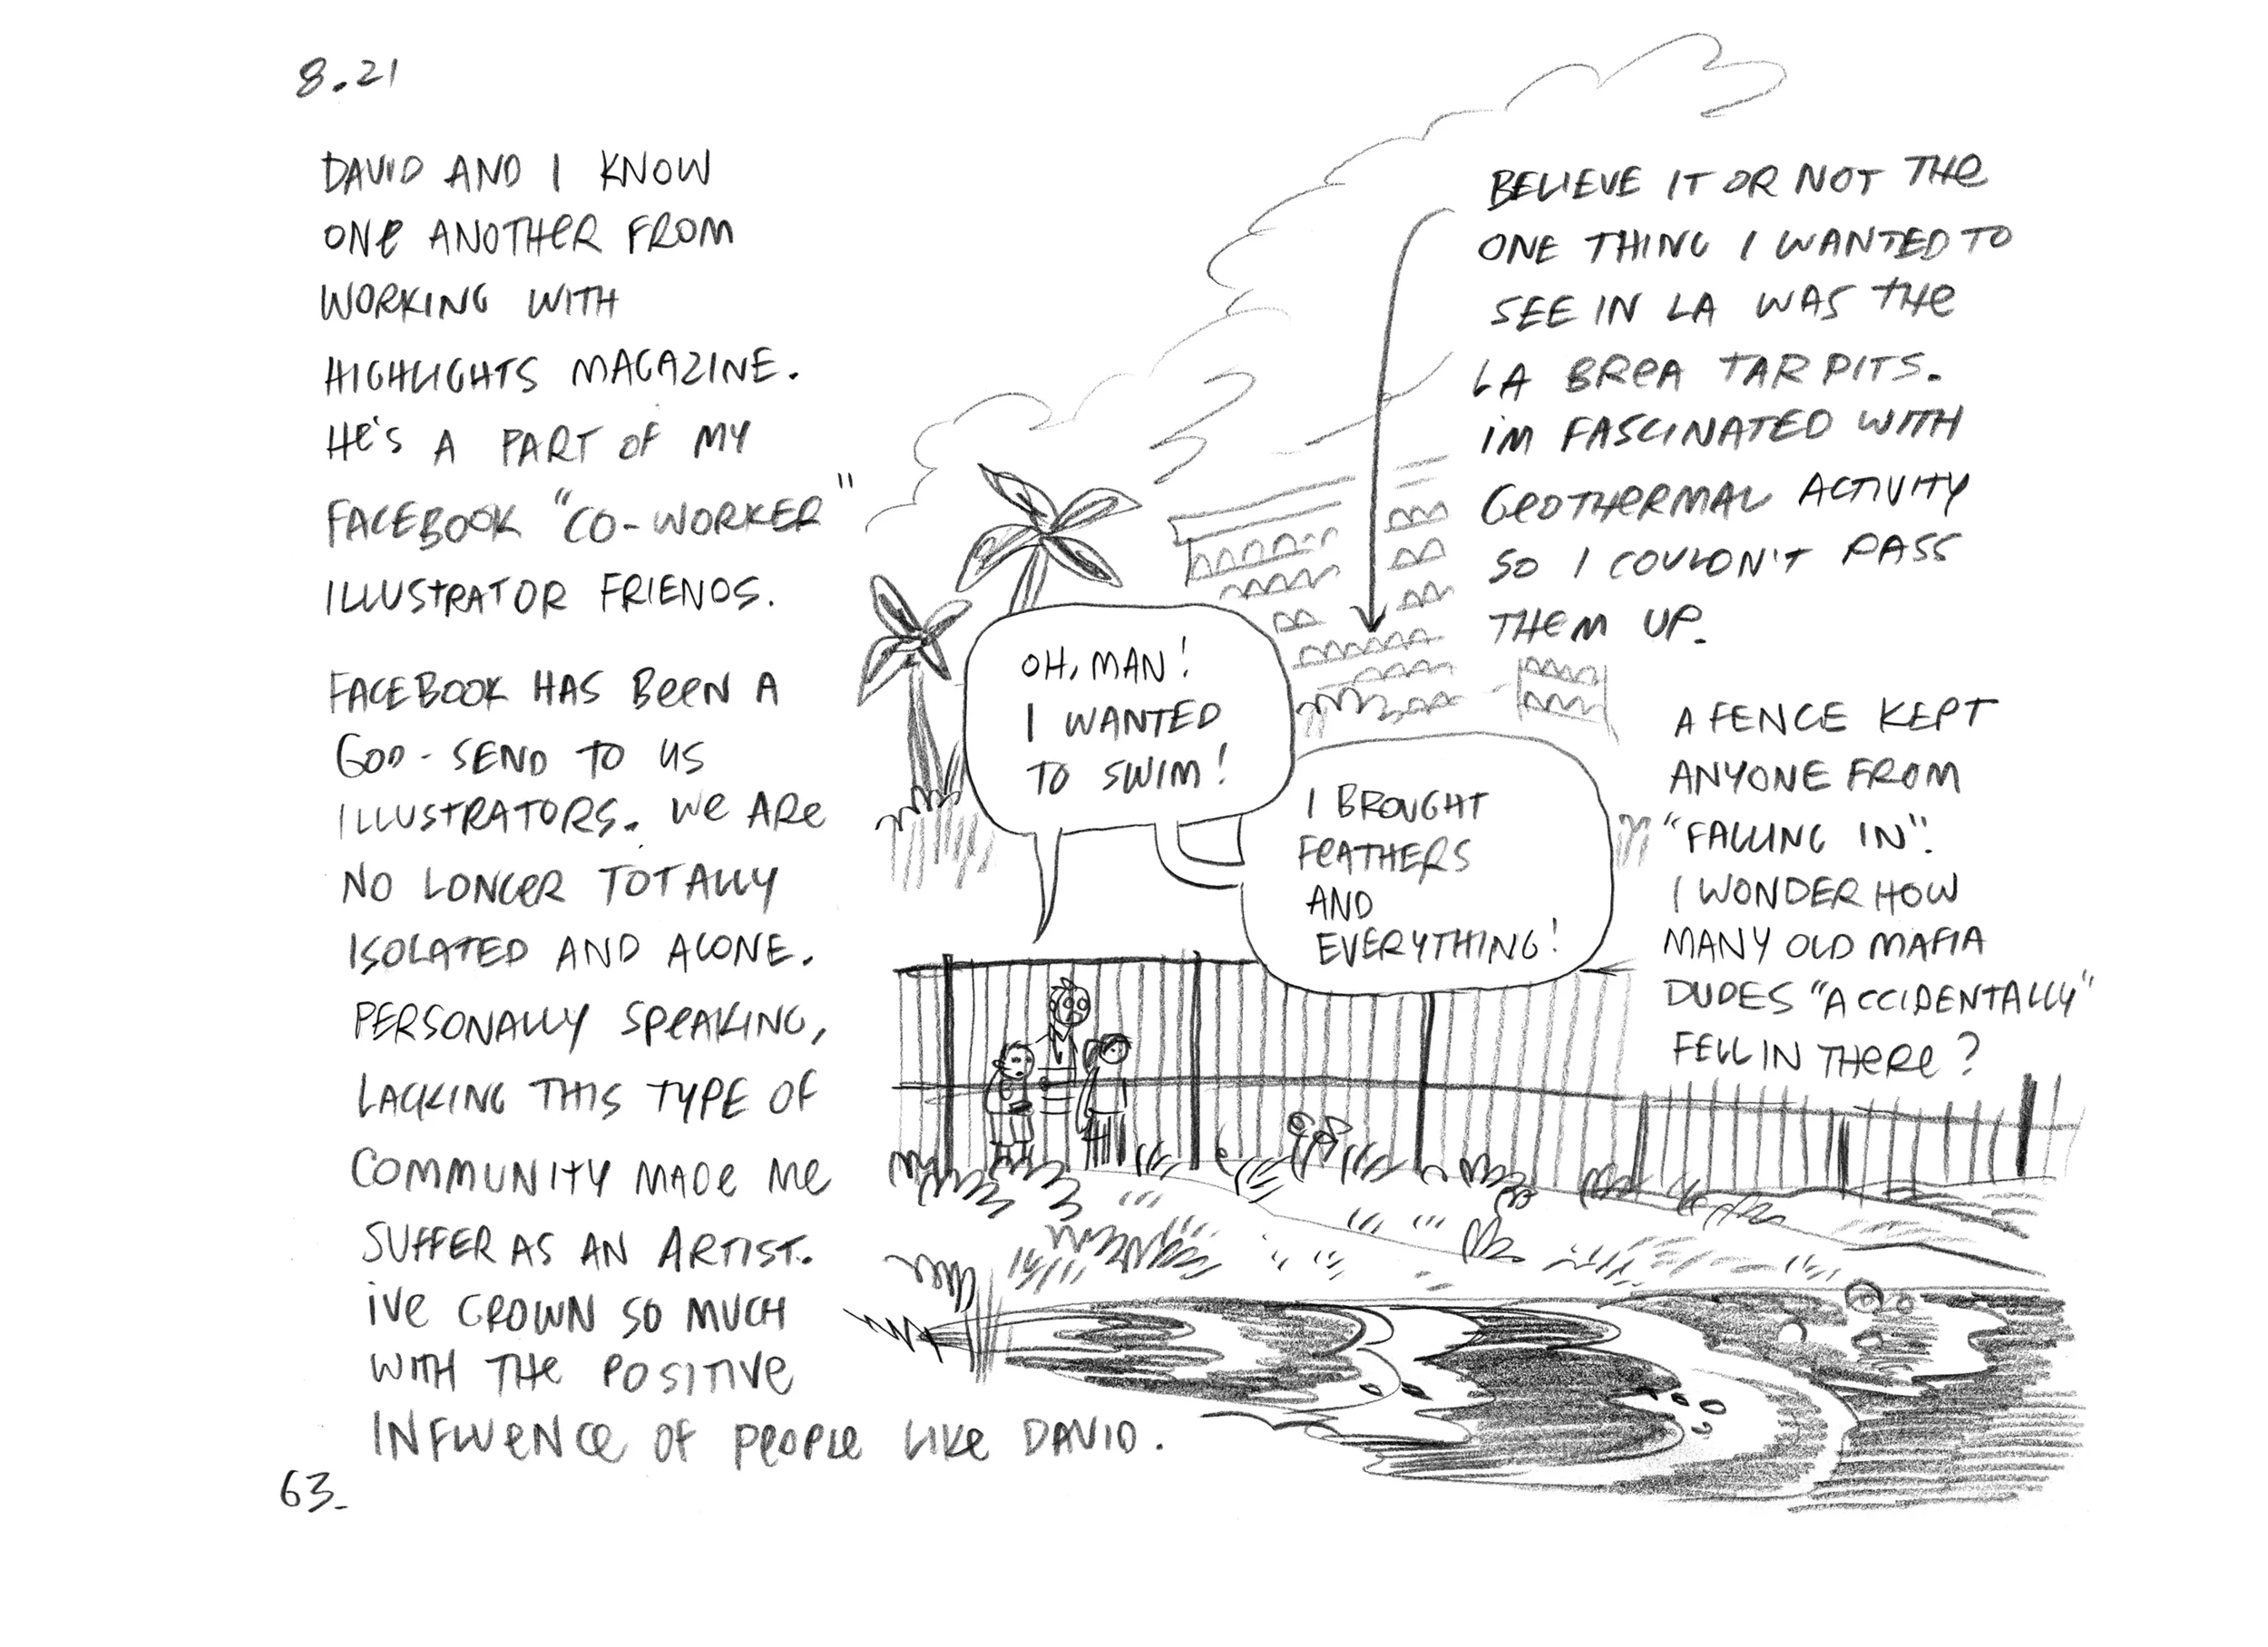 8.21
DAVID AND I KNOW
ONE ANOTHER FROM
WORKING WITH
HIGHLIGHTS MAGAZINE.
HE'S A PART OF MY
FACEBOOK "CO-WORKER"
ILLUSTRATOR FRIENDS.
FACEBOOK HAS BEEN A
GOD-SEND TO US
ILLUSTRATORS. WE ARE
NO LONGER TOTALLY
ISOLATED AND ALONE.
PERSONALLY SPEAKING,
LACKING THIS TYPE OF
COMMUNITY MADE ME
SUFFER AS AN ARTIST.
I'VE GROWN SO MUCH
WITH THE POSITIVE
INFLUENCE OF PEOPLE LIKE DAVID.
63.
BELIEVE IT OR NOT THE
ONE THING I WANTED TO
SEE IN LA WAS THE
LA BREA TAR PITS.
I'M FASCINATED WITH
GEOTHERMAL ACTIVITY
SO I COULDN'T PASS
THEM UP.
OH, MAN!
I WANTED
TO SWIM!
I BROUGHT
FEATHERS
AND
EVERYTHING!
A FENCE KEPT
ANYONE FROM
"FALLING IN".
I WONDER HOW
MANY OLD MAFIA
DUDES "ACCIDENTALLY"
FELL IN THERE?